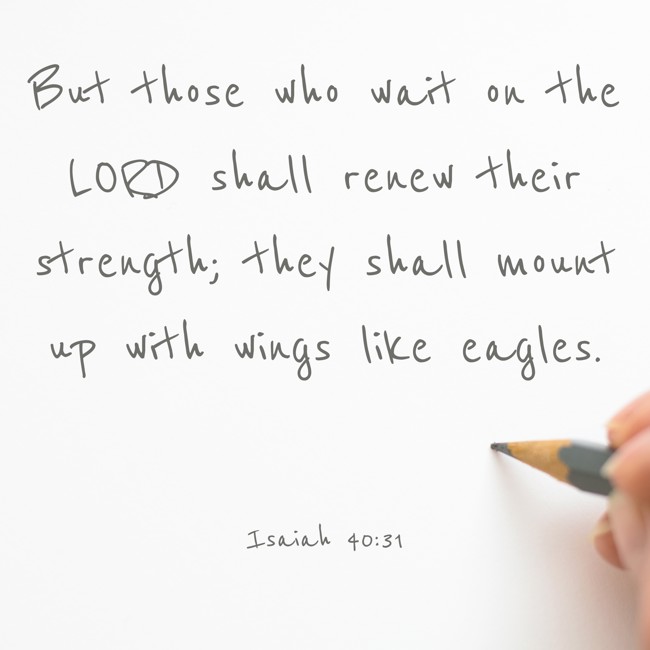 But those who wait on the
LORD shall renew their
strength; they shall mount
up with wings like eagles.
Isaiah 40:31